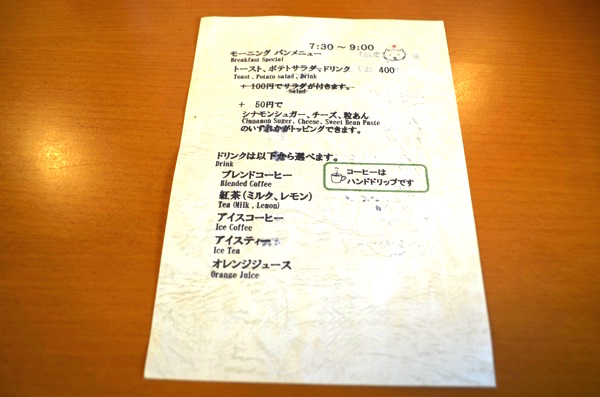 7:30 ～ 9:00
モーニング パンメニュー
Breakfast Special
トースト、ポテトサラダ、ドリンク 400
Toast, Potato salad, Drink
+ 100円でサラダが付きます。
Salad
+ 50円で
シナモンシュガー、チーズ、粒あん
Cinnamon Suger, Cheese, Sweet Bean Paste
のいずれかがトッピングできます。
ドリンクは以下から選べます。
Drink
ブレンドコーヒー
Blended Coffee
コーヒーは
ハンドドリップです
紅茶（ミルク、レモン）
Tea (Milk, Lemon)
アイスコーヒー
Ice Coffee
アイスティー
Ice Tea
オレンジジュース
Orange Juice